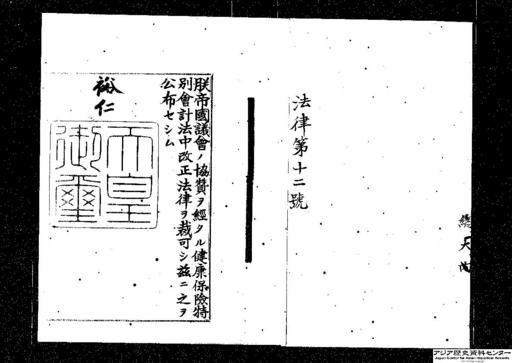 法律第十二號
朕帝國議會ノ協賛ヲ經タル健康保險特
別會計法中改正法律ヲ裁可シ茲ニ之ヲ
公布セシム
裕仁
天皇
御璽
アジア歴史資料センター
Japan Center for Asian Historical Records